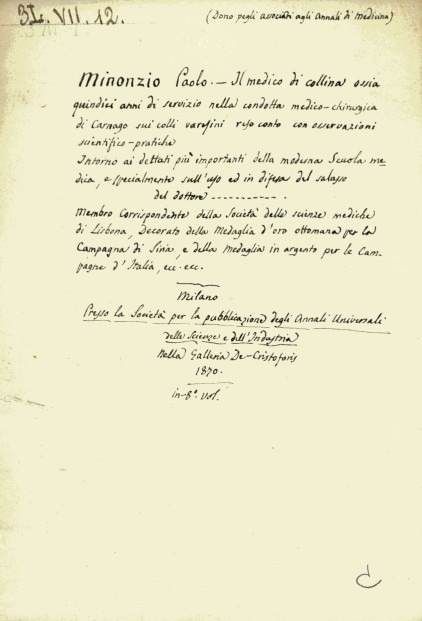 3L. VII. 12.
(Dono pegli associati agli Annali di Medicina)
Minonzio Paolo. — Il medico di collina ossia
quindici anni di servizio nella condotta medico-chirurgica
di Carnago sui colli varesini reso conto con osservazioni
scientifico-pratiche
Intorno ai dettati più importanti della moderna Scuola me-
dica, e specialmente sull'uso ed in difesa del salasso
del dottore ----------.
Membro Corrispondente della Società delle scienze mediche
di Lisbona, Decorato della Medaglia d'oro ottomana per la
Campagna di Siria, e della Medaglia in argento per le Cam-
pagne d'Italia, ecc. ecc.
Milano
Presso la Società per la pubblicazione degli Annali Universali
delle Scienze e dell'Industria
Nella Galleria De-Cristoforis
1870.
in-8.º vol.